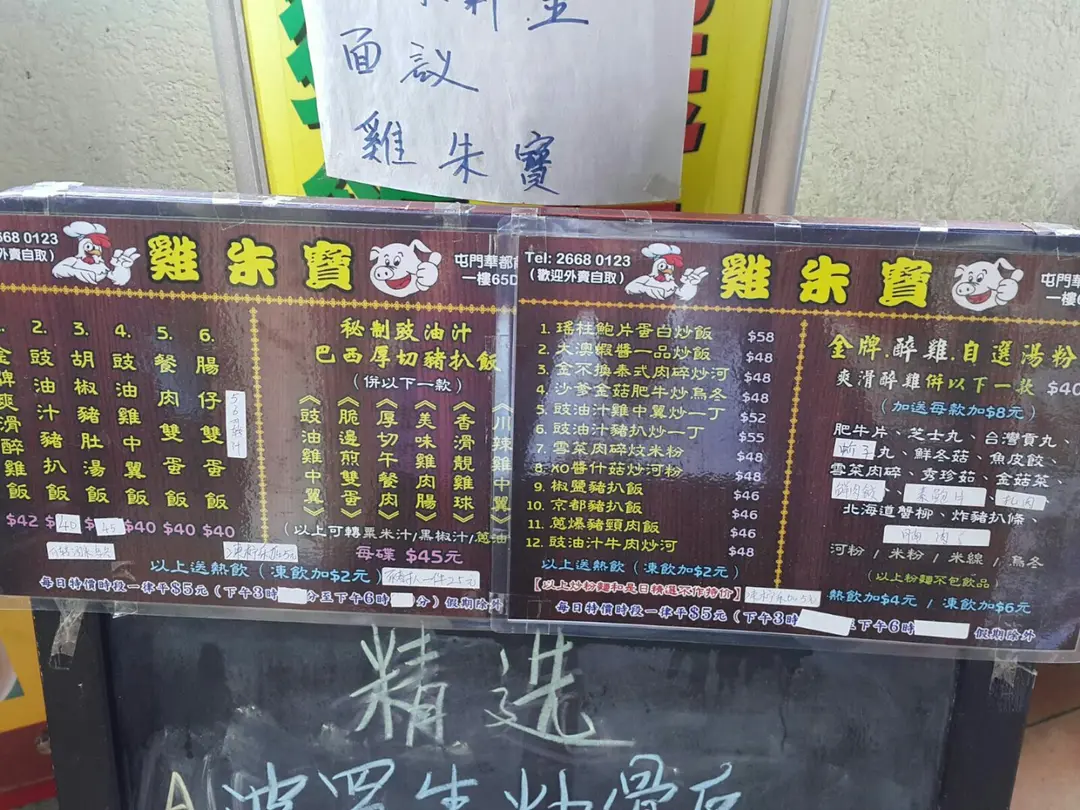 面議
雞朱寶
668 0123
外賣自取）
雞朱寶
屯門華都
一樓65D
2. 豉油汁豬扒飯
3. 胡椒豬肚湯飯
4. 豉油雞中翼飯
5. 餐肉雙蛋飯
6. 腸仔雙蛋飯
$42 $40 $45 $40 $40 $40
以上送熱飲（凍飲加$2元）
每日特價時段一律平$5元（下午3時 分至下午6時 分）假期除外
秘制豉油汁
巴西厚切豬扒飯
（併以下一款）
《豉油雞中翼》
《脆邊煎雙蛋》
《厚切午餐肉》
《美味雞肉腸》
《香滑靚雞球》
《川辣雞中翼》
（以上可轉粟米汁/黑椒汁/蔥油
每碟 $45元
Tel: 2668 0123
（歡迎外賣自取）
雞朱寶
屯門華
一樓
1. 瑤柱鮑片蛋白炒飯 $58
2. 大澳蝦醬一品炒飯 $48
3. 金不換泰式肉碎炒河 $48
4. 沙爹金菇肥牛炒烏冬 $48
5. 豉油汁雞中翼炒一丁 $52
6. 豉油汁豬扒炒一丁 $55
7. 雪菜肉碎炆米粉 $48
8. XO醬什菇炒河粉 $48
9. 椒鹽豬扒飯 $46
10. 京都豬扒飯 $46
11. 蔥爆豬頸肉飯 $46
12. 豉油汁牛肉炒河 $48
以上送熱飲（凍飲加$2元）
【以上炒粉麵和是日精選不作特價】
每日特價時段一律平$5元（下午3時 至下午6時 假期除外
金牌.醉雞.自選湯粉
爽滑醉雞併以下一款 $40
（加送每款加$8元）
肥牛片、芝士丸、台灣貢丸、
丸、鮮冬菇、魚皮餃、
雪菜肉碎、秀珍菇、金菇菜、
北海道蟹柳、炸豬扒條、
河粉 / 米粉 / 米線 / 烏冬
（以上粉麵不包飲品）
熱飲加$4元 / 凍飲加$6元
精選